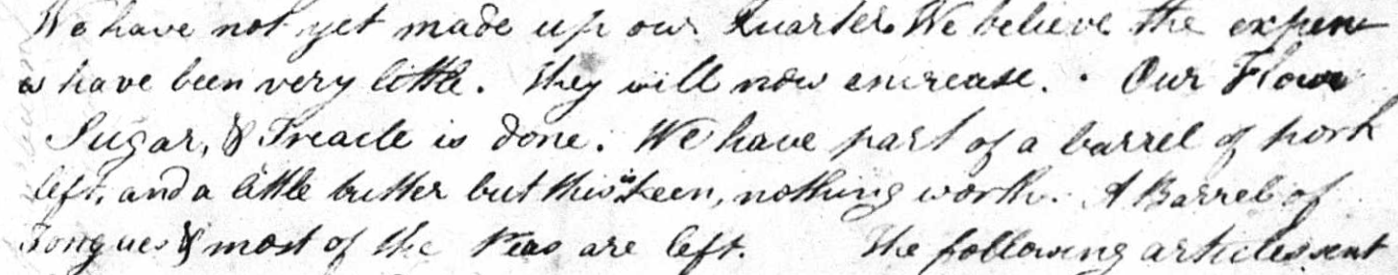 We have not yet made up our Quarter. We believe the expen
s have been very little. They will now encrease. Our Flour
Sugar, & Treacle is done. We have part of a barrel of pork
left, and a little butter but this is keen, nothing worth. A Barrel of
Tongues & most of the Peas are left. The following articles sent